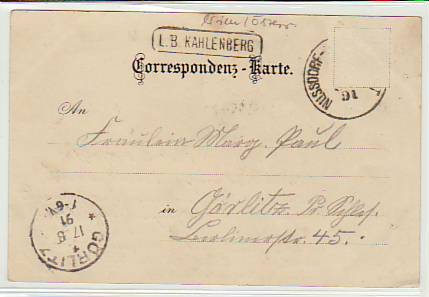 Wien/Österr
L.B. KAHLENBERG
Correspondenz-Karte.
NUSSDORF-
91
An
Fräulein Marg. Paul
in Görlitz. Pr. Schles.
Berlinerstr. 45.
GÖRLITZ
17 8
91
7-8 V.